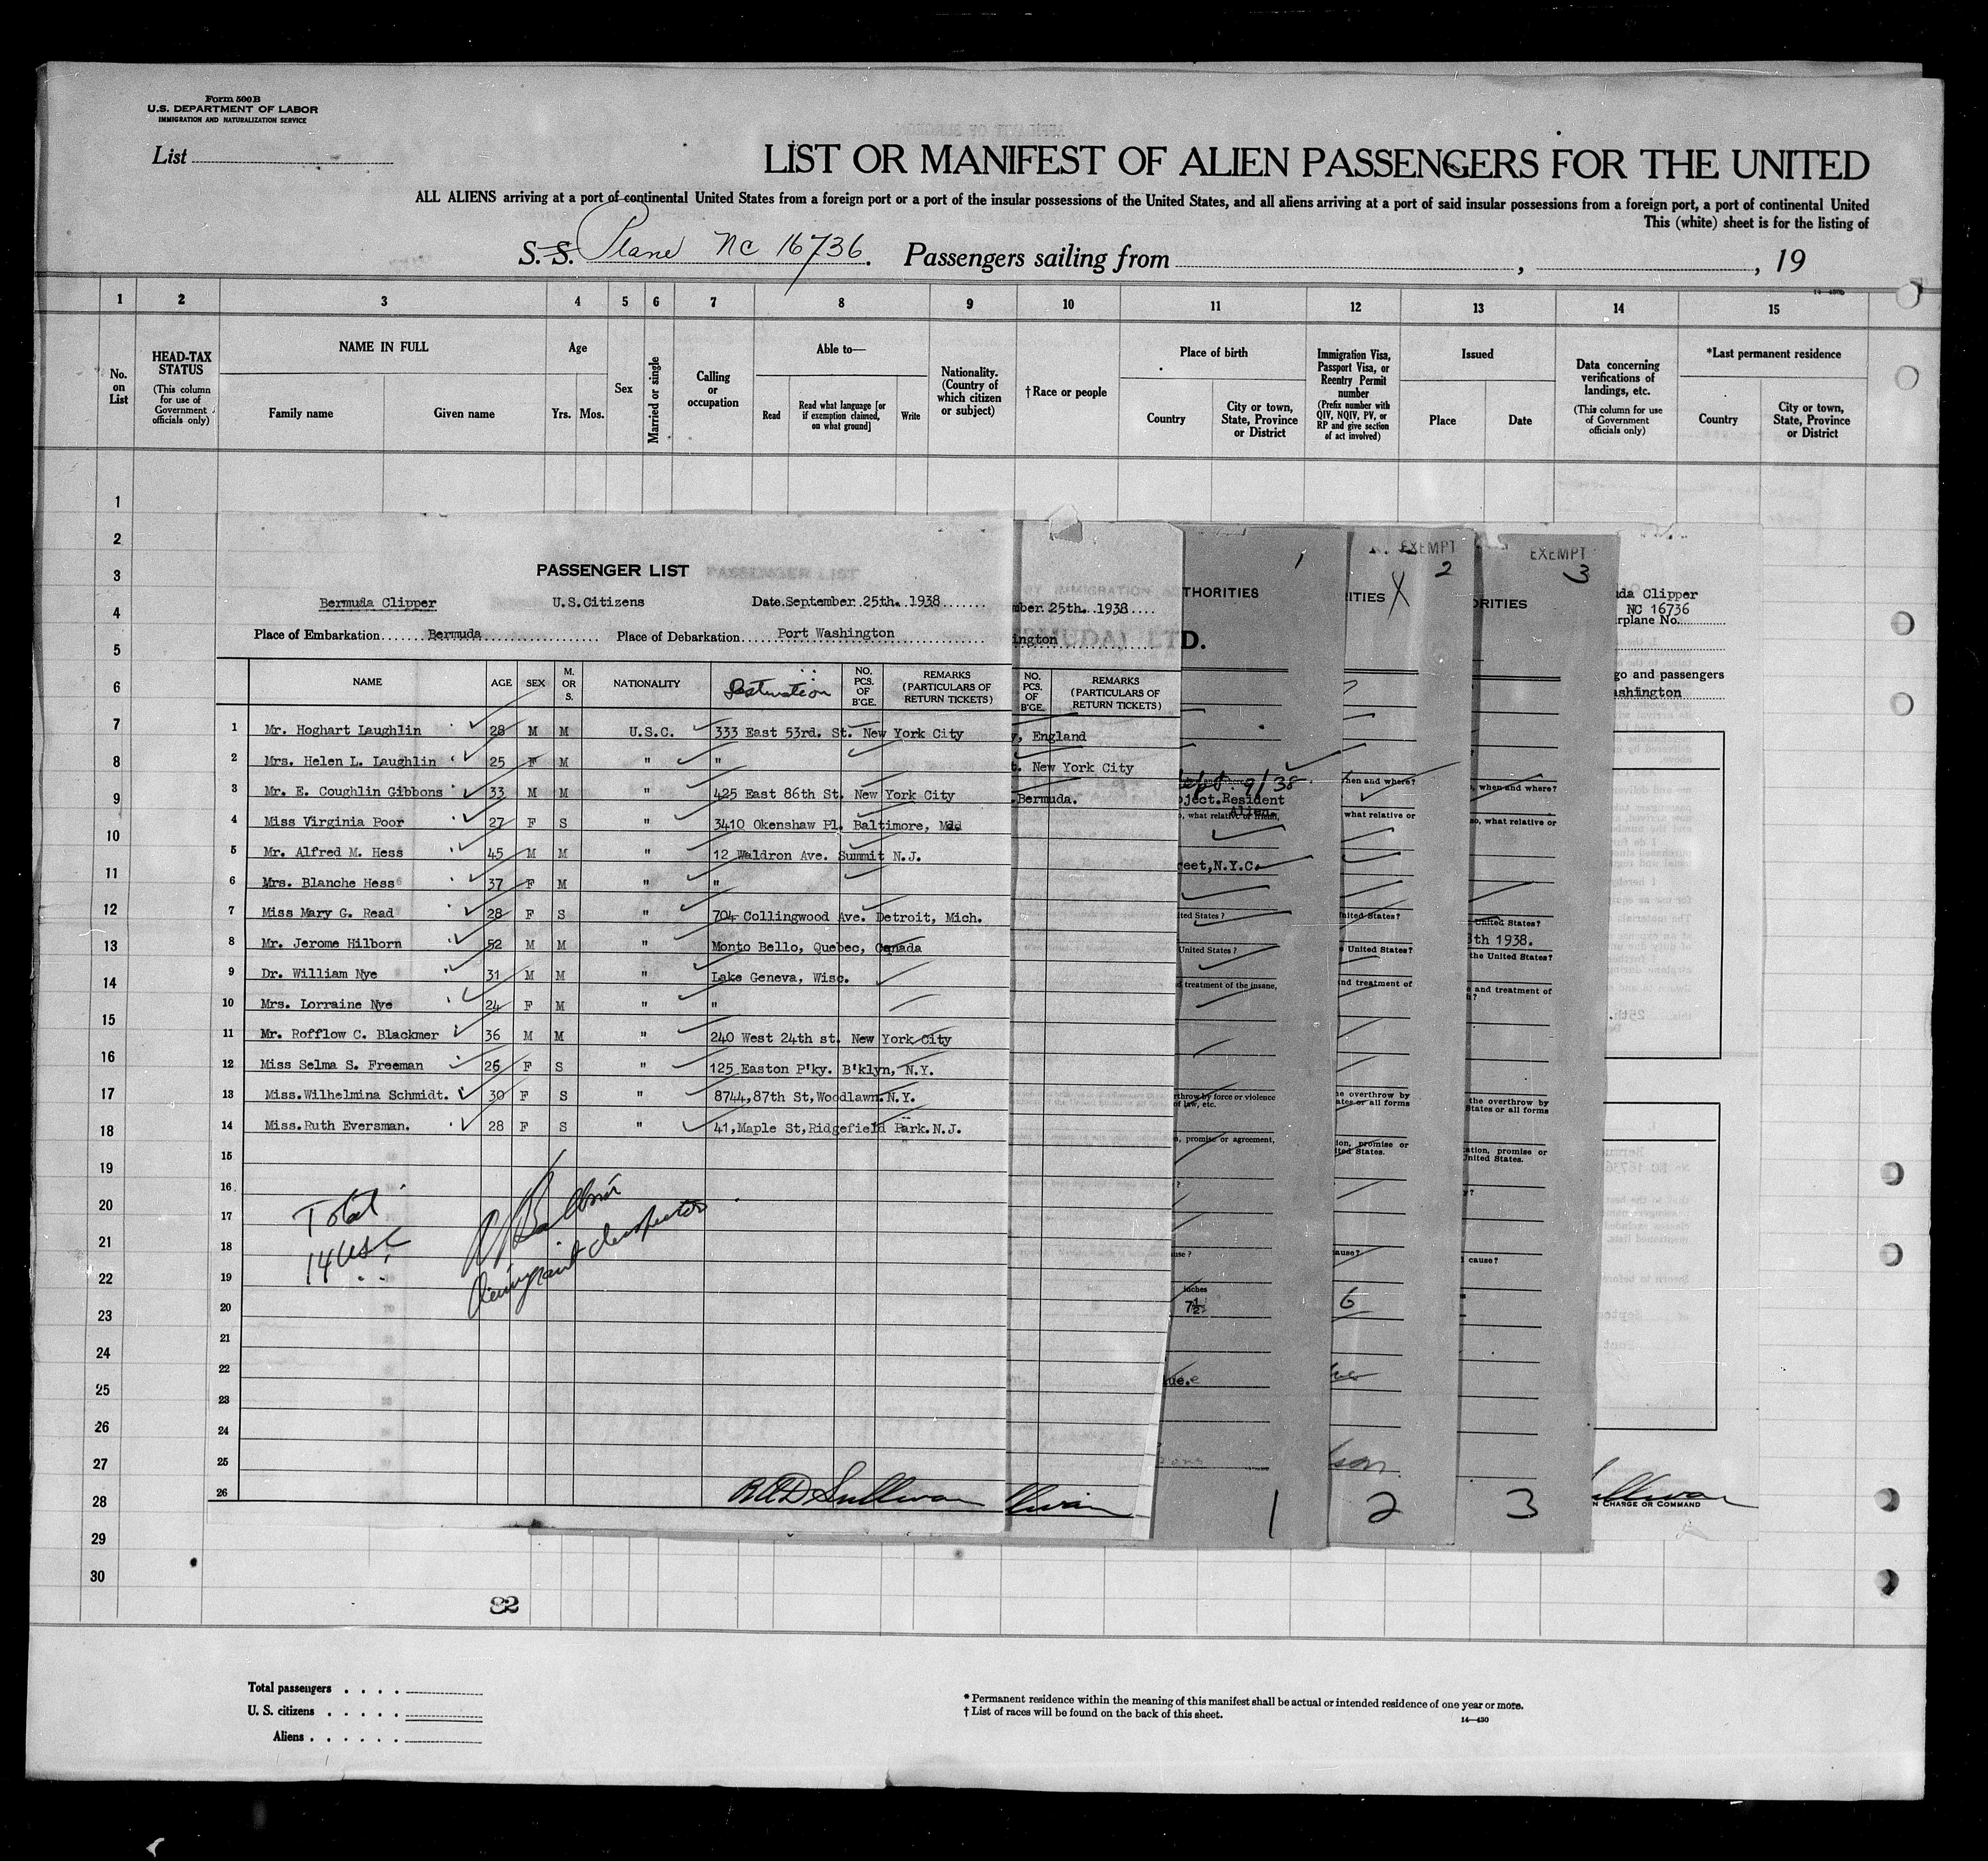 Form 500 B
U.S. DEPARTMENT OF LABOR
IMMIGRATION AND NATURALIZATION SERVICE
List
LIST OR MANIFEST OF ALIEN PASSENGERS FOR THE UNITED
ALL ALIENS arriving at a port of continental United States from a foreign port or a port of the insular possessions of the United States, and all aliens arriving at a port of said insular possessions from a foreign port, a port of continental United
This (white) sheet is for the listing of
S. S. Plane NC 16736. Passengers sailing from , , 19
1 2 3 4 5 6 7 8 9 10 11 12 13 14 15
No. on List
HEAD-TAX STATUS
(This column for use of Government officials only)
NAME IN FULL
Family name Given name
Age
Yrs. Mos.
Sex
Married or single
Calling or occupation
Able to—
Read
Read what language [or if exemption claimed, on what ground]
Write
Nationality. (Country of which citizen or subject)
† Race or people
Place of birth
Country
City or town, State, Province or District
Immigration Visa, Passport Visa, or Reentry Permit number
(Prefix number with QIV, NQIV, PV, or RP and give section of act involved)
Issued
Place Date
Data concerning verifications of landings, etc.
(This column for use of Government officials only)
*Last permanent residence
Country
City or town, State, Province or District
1
2
3
4
5
6
7
8
9
10
11
12
13
14
15
16
17
18
19
20
21
22
23
24
25
26
27
28
29
30
PASSENGER LIST
Bermuda Clipper U.S.Citizens Date.September 25th. 1938
Place of Embarkation Bermuda Place of Debarkation Port Washington
NAME AGE SEX M. OR S. NATIONALITY Destination NO. PCS. OF B'GE. REMARKS (PARTICULARS OF RETURN TICKETS)
1 Mr. Hoghart Laughlin 28 M M U.S.C. 333 East 53rd. St. New York City
2 Mrs. Helen L. Laughlin 25 F M " "
3 Mr. E. Coughlin Gibbons 33 M M " 425 East 86th St. New York City
4 Miss Virginia Poor 27 F S " 3410 Okenshaw Pl. Baltimore, Md.
5 Mr. Alfred M. Hess 45 M M " 12 Waldron Ave. Summit N.J.
6 Mrs. Blanche Hess 37 F M " "
7 Miss Mary G. Read 28 F S " 704 Collingwood Ave. Detroit, Mich.
8 Mr. Jerome Hilborn 52 M M " Monto Bello, Quebec, Canada
9 Dr. William Nye 31 M M " Lake Geneva, Wisc.
10 Mrs. Lorraine Nye 24 F M " "
11 Mr. Rofflow C. Blackmer 36 M M " 240 West 24th st. New York City
12 Miss Selma S. Freeman 26 F S " 125 Easton P'ky. B'klyn, N.Y.
13 Miss.Wilhelmina Schmidt. 30 F S " 8744,87th St,Woodlawn.N.Y.
14 Miss.Ruth Eversman. 28 F S " 41,Maple St,Ridgefield Park.N.J.
15
16
17
18
19
20
21
22
23
24
25
26
Total
14 USC
Immigrant Inspector
Sullivan
25th. 1938
ington
NO. PCS. OF B'GE.
REMARKS (PARTICULARS OF RETURN TICKETS)
, England
New York City
Bermuda.
THORITIES
1
D.
Sept. 9/38
ject.Resident
Alien.
, what relative or friend,
eet,N.Y.C.
ited States?
United States?
d treatment of the insane,
throw by force or violence
of law, etc.
, promise or agreement,
use?
inches
7½
ue.
1
EXEMPT
2
ITIES X
hen and where?
what relative or
United States?
United States?
nd treatment of
e overthrow by
ates or all forms
ion, promise or
ited States.
ause?
6
son
2
EXEMPT
3
ORITIES
, when and where?
so, what relative or
United States?
th 1938.
the United States?
and treatment of
the overthrow by
States or all forms
ation, promise or
United States.
cause?
3
uda Clipper
NC 16736
irplane No.
go and passengers
ashington
N CHARGE OR COMMAND
82
Total passengers
U. S. citizens
Aliens
* Permanent residence within the meaning of this manifest shall be actual or intended residence of one year or more.
† List of races will be found on the back of this sheet.
14—430